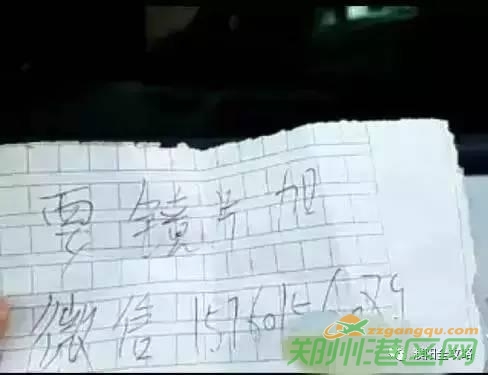 要镜片加
微信 1576015
zzgangqu.com
郑州港区网
濮阳全攻略